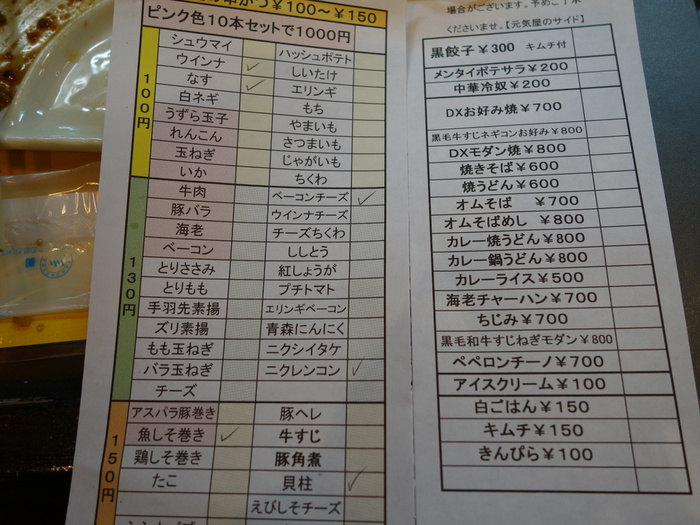 ¥100～¥150
ピンク色10本セットで1000円
100円
シュウマイ
ハッシュポテト
ウインナ
しいたけ
なす
エリンギ
白ネギ
もち
うずら玉子
やまいも
れんこん
さつまいも
玉ねぎ
じゃがいも
いか
ちくわ
130円
牛肉
ベーコンチーズ
豚バラ
ウインナチーズ
海老
チーズちくわ
ベーコン
ししとう
とりささみ
紅しょうが
とりもも
プチトマト
手羽先素揚
エリンギベーコン
ズリ素揚
青森にんにく
もも玉ねぎ
ニクシイタケ
バラ玉ねぎ
ニクレンコン
チーズ
150円
アスパラ豚巻き
豚ヘレ
魚しそ巻き
牛すじ
鶏しそ巻き
豚角煮
たこ
貝柱
えびしそチーズ
場合がございます。
くださいませ。【元気屋のサイド】
黒餃子¥300 キムチ付
メンタイポテサラ¥200
中華冷奴¥200
DXお好み焼¥700
黒毛牛すじネギコンお好み¥800
DXモダン焼¥800
焼きそば¥600
焼うどん¥600
オムそば ¥700
オムそばめし ¥800
カレー焼うどん¥800
カレー鍋うどん¥800
カレーライス¥500
海老チャーハン¥700
ちじみ¥700
黒毛和牛すじねぎモダン¥800
ペペロンチーノ¥700
アイスクリーム¥100
白ごはん¥150
キムチ¥150
きんぴら¥100